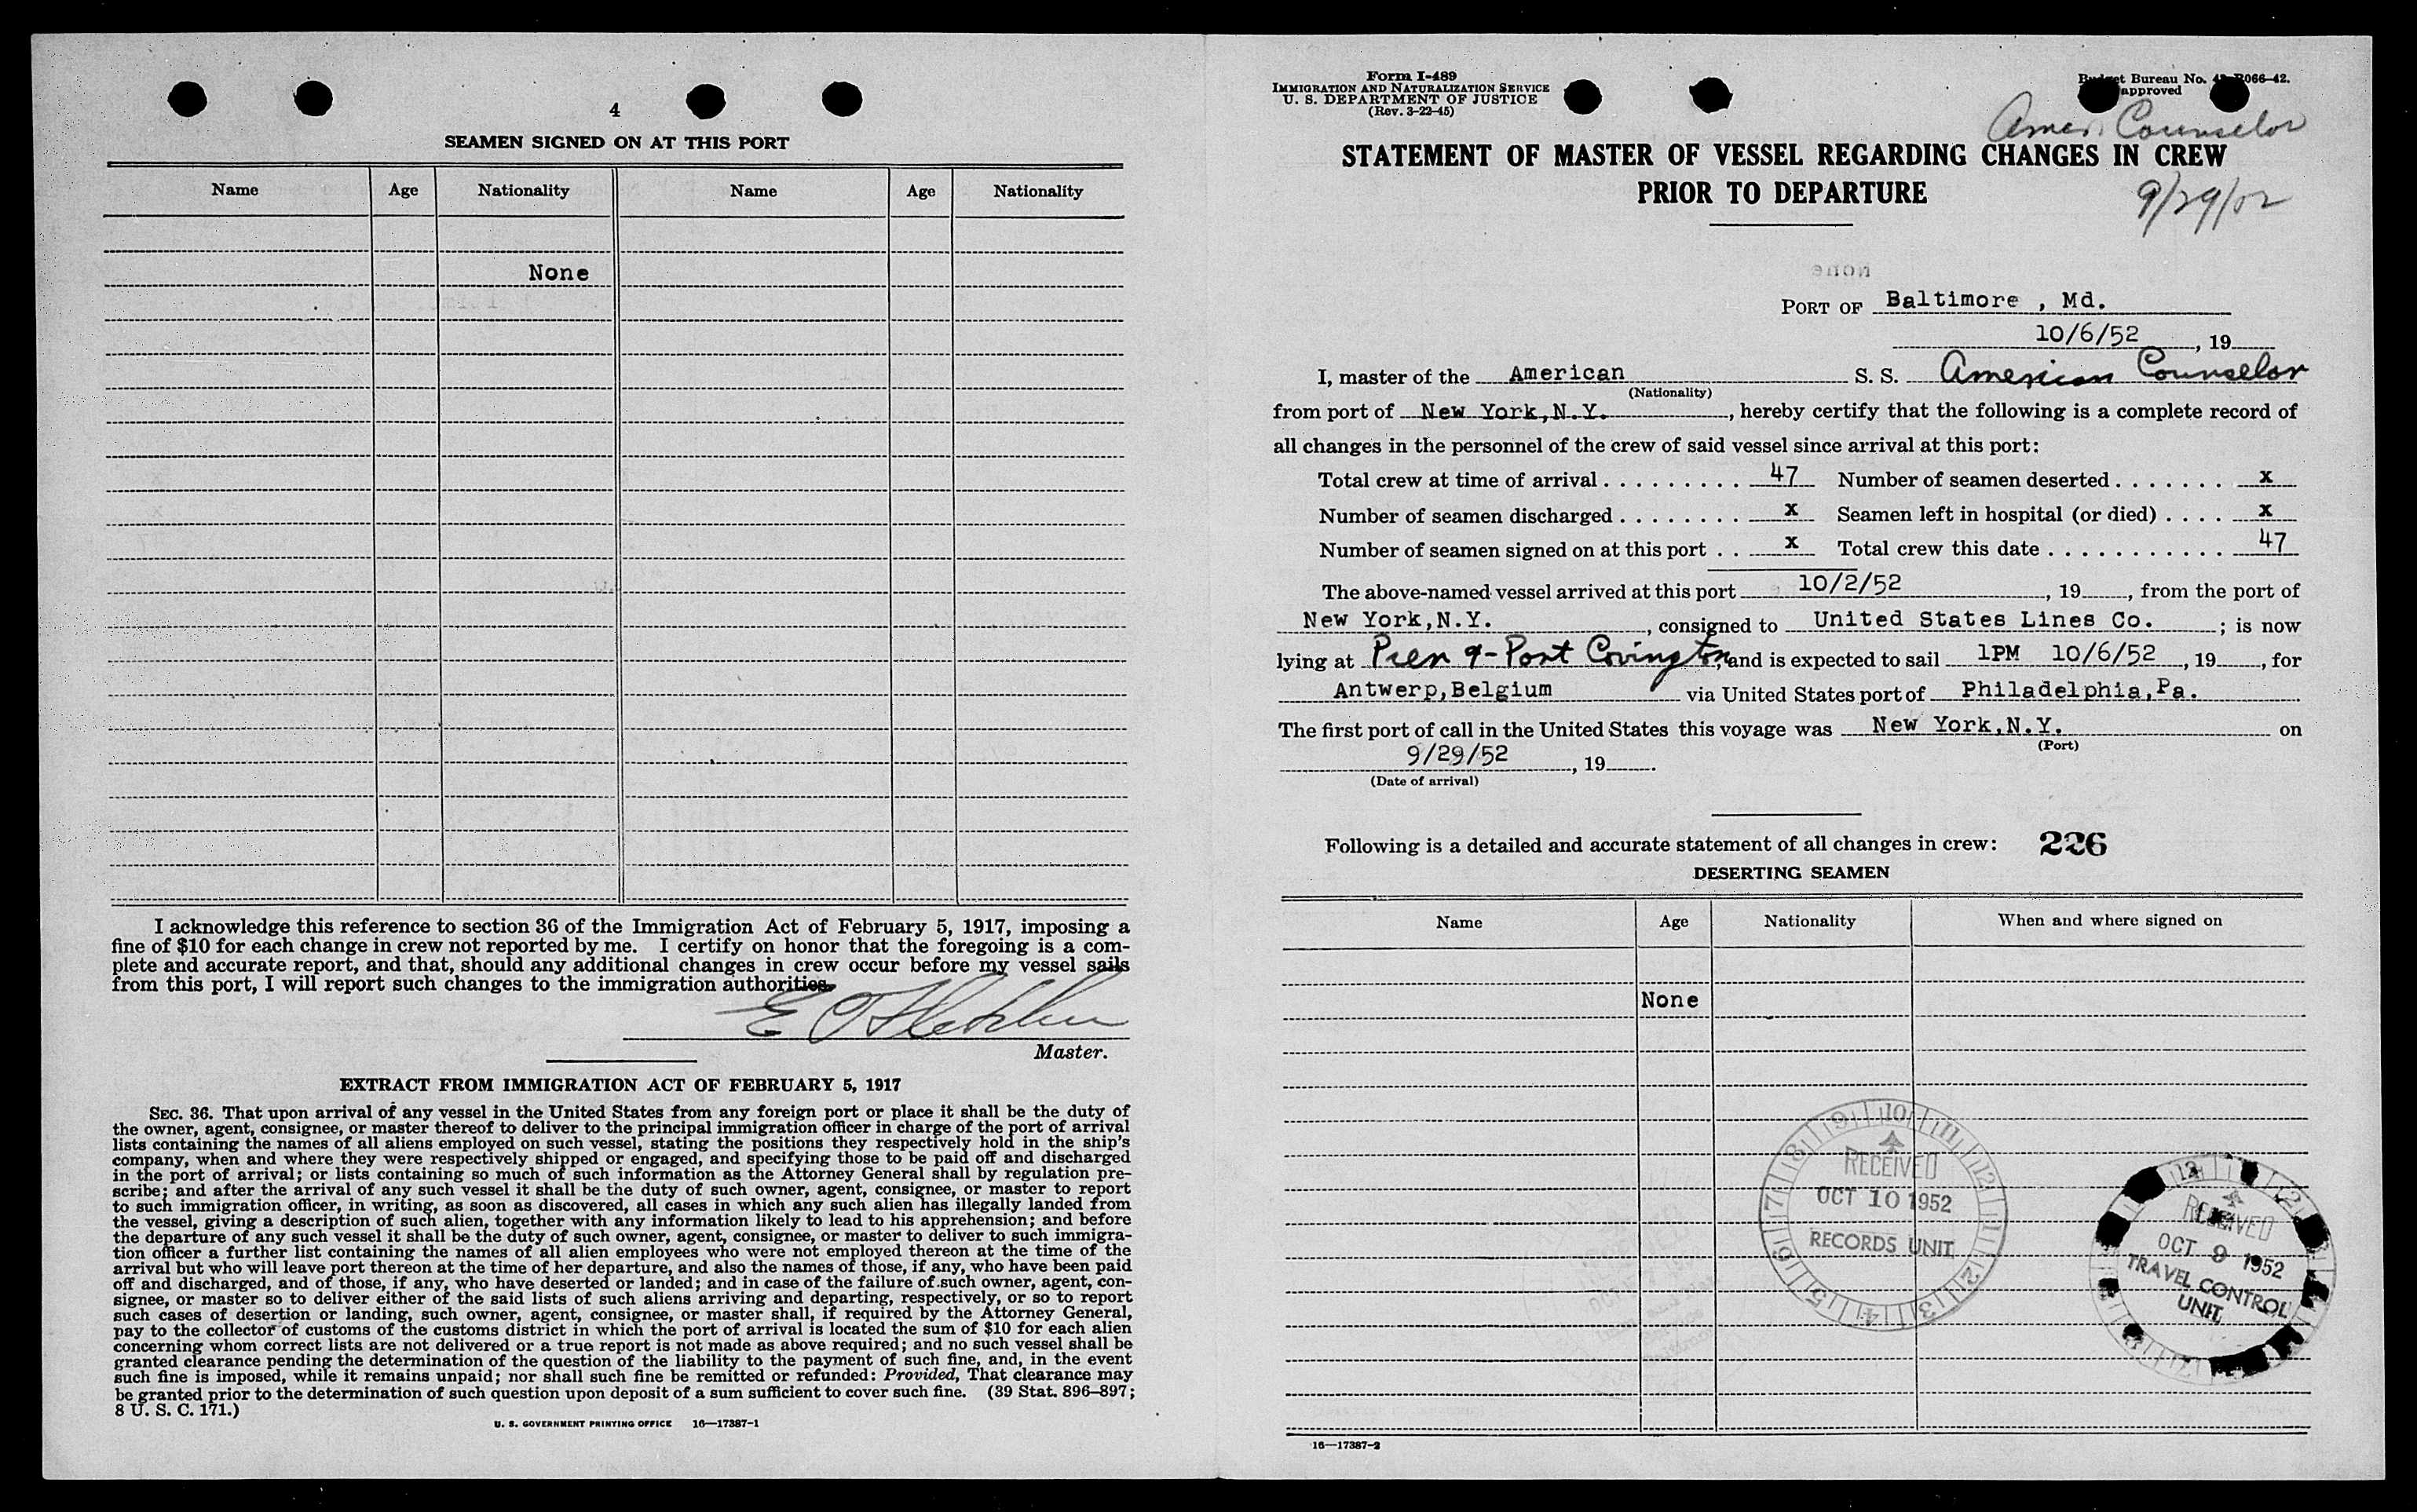 4
SEAMEN SIGNED ON AT THIS PORT
Name Age Nationality Name Age Nationality
None
I acknowledge this reference to section 36 of the Immigration Act of February 5, 1917, imposing a
fine of $10 for each change in crew not reported by me. I certify on honor that the foregoing is a com-
plete and accurate report, and that, should any additional changes in crew occur before my vessel sails
from this port, I will report such changes to the immigration authorities.
E O Fletcher
Master.
EXTRACT FROM IMMIGRATION ACT OF FEBRUARY 5, 1917
SEC. 36. That upon arrival of any vessel in the United States from any foreign port or place it shall be the duty of
the owner, agent, consignee, or master thereof to deliver to the principal immigration officer in charge of the port of arrival
lists containing the names of all aliens employed on such vessel, stating the positions they respectively hold in the ship's
company, when and where they were respectively shipped or engaged, and specifying those to be paid off and discharged
in the port of arrival; or lists containing so much of such information as the Attorney General shall by regulation pre-
scribe; and after the arrival of any such vessel it shall be the duty of such owner, agent, consignee, or master to report
to such immigration officer, in writing, as soon as discovered, all cases in which any such alien has illegally landed from
the vessel, giving a description of such alien, together with any information likely to lead to his apprehension; and before
the departure of any such vessel it shall be the duty of such owner, agent, consignee, or master to deliver to such immigra-
tion officer a further list containing the names of all alien employees who were not employed thereon at the time of the
arrival but who will leave port thereon at the time of her departure, and also the names of those, if any, who have been paid
off and discharged, and of those, if any, who have deserted or landed; and in case of the failure of such owner, agent, con-
signee, or master so to deliver either of the said lists of such aliens arriving and departing, respectively, or so to report
such cases of desertion or landing, such owner, agent, consignee, or master shall, if required by the Attorney General,
pay to the collector of customs of the customs district in which the port of arrival is located the sum of $10 for each alien
concerning whom correct lists are not delivered or a true report is not made as above required; and no such vessel shall be
granted clearance pending the determination of the question of the liability to the payment of such fine, and, in the event
such fine is imposed, while it remains unpaid; nor shall such fine be remitted or refunded: Provided, That clearance may
be granted prior to the determination of such question upon deposit of a sum sufficient to cover such fine. (39 Stat. 896–897;
8 U. S. C. 171.)
U. S. GOVERNMENT PRINTING OFFICE 16—17387-1
Form I-489
IMMIGRATION AND NATURALIZATION SERVICE
U. S. DEPARTMENT OF JUSTICE
(Rev. 3-22-45)
Budget Bureau No. 066-42.
approved
Amer. Counselor
STATEMENT OF MASTER OF VESSEL REGARDING CHANGES IN CREW
PRIOR TO DEPARTURE
9/29/52
PORT OF Baltimore , Md.
10/6/52 , 19
I, master of the American S. S. American Counselor
(Nationality)
from port of New York,N.Y. , hereby certify that the following is a complete record of
all changes in the personnel of the crew of said vessel since arrival at this port:
Total crew at time of arrival . . . . . . . . . 47 Number of seamen deserted . . . . . . . x
Number of seamen discharged . . . . . . . . x Seamen left in hospital (or died) . . . . x
Number of seamen signed on at this port . . x Total crew this date . . . . . . . . . . . . 47
The above-named vessel arrived at this port 10/2/52 , 19 , from the port of
New York,N.Y. , consigned to United States Lines Co. ; is now
lying at Pier 9-Port Covington, and is expected to sail 1PM 10/6/52 , 19 , for
Antwerp,Belgium via United States port of Philadelphia,Pa.
The first port of call in the United States this voyage was New York,N.Y. on
(Port)
9/29/52 , 19 .
(Date of arrival)
Following is a detailed and accurate statement of all changes in crew: 226
DESERTING SEAMEN
Name Age Nationality When and where signed on
None
RECEIVED
OCT 10 1952
RECORDS UNIT
RECEIVED
OCT 9 1952
TRAVEL CONTROL
UNIT
16—17387-2